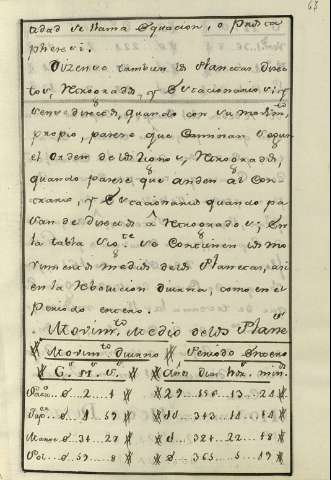 67
dad se llama Equacion, o Prosta
pheresi.
Dizense tambien los Planetas direc
tos, Retrogrados, y Estacionarios
directos, quando con su movim.to
propio, parese que Caminan segun
el orden de los signos, Retrogrados,
quando parese que anden al Con
trario, y Estacionarios quando pa
san de directos â Retrogrados; En
la tabla sig.te se Contienen los mo
vimientos medios de los Planetas, asi
en la Revolucion diurna, como en el
Periodo entero.
Movim.to Medio de los Plane
Movim.to diurno Periodo Entero
G. M. S. Años dias hor. min.
0 .. 2 .. 1 29 .. 13 .. 24
0 .. 4 .. 59 11 .. 14 .. 14
Marte 0 .. 31 .. 27 321 .. 22 .. 18
Sol 0 .. 59 .. 8 0 .. 365 .. 5 .. 49